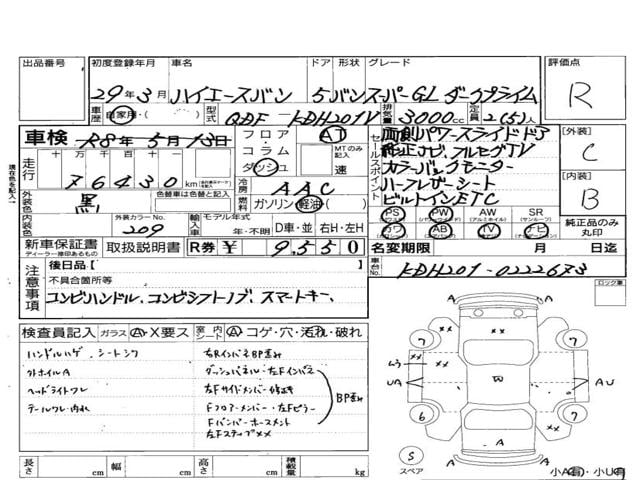 出品番号 初度登録年月 車名 ドア 形状 グレード 評価点
29年3月 ハイエースバン 5 バン スーパーGL ダークプライム R
車歴 自家用・( ) 型式 QDF-KDH201V 排気量 3000cc 定員 2(5)人
車検 R8年5月13日 フロア AT 両側パワースライドドア 【外装】
コラム MTのみ記入 セールスポイント 純正ナビ、フルセグTV C
走行 十万 万 千 百 十 一 ダッシュ 速 カラーバックモニター 【内装】
76430 km 冷房 AAC ハーフレザーシート B
外装色 黒 色替車は色替と記入 燃料 ガソリン 軽油( ) ビルトインETC
内装色 外装カラーNo. 209 輸入車 モデル年式 年・不明 D車・並 右H・左H
PS PW AW SR 純正品のみ丸印
カワ AB TV ナビ
現在色を記入
新車保証書 取扱説明書 R券 ¥ 9,550 名変期限 月 日迄
ディーラー捺印あるもの
車台No. KDH201-0222673
注意事項 後日品【
不具合箇所等 ロック車
コンビハンドル、コンビシフトノブ、スマートキー、
検査員記入 ガラス A・X要ス 室内シート A・コゲ・穴・汚れ・破れ
ハンドルハゲ、シートシワ 右Rインパネ BP歪み
外ホイルA ダッシュパネル・左Fインパネ
ヘッドライトワレ 左Fサイドメンバー修正キ
テールワレ・内水 Fフロアーメンバー・左Fピラー BP歪み
Fバンパーホースメント
左Fステップ××
A A
×× 7 7 ××
UA W AU
6 7
A
S スペア A A
長さ cm 幅 cm 高さ cm 積載量 kg 小A有・小U有